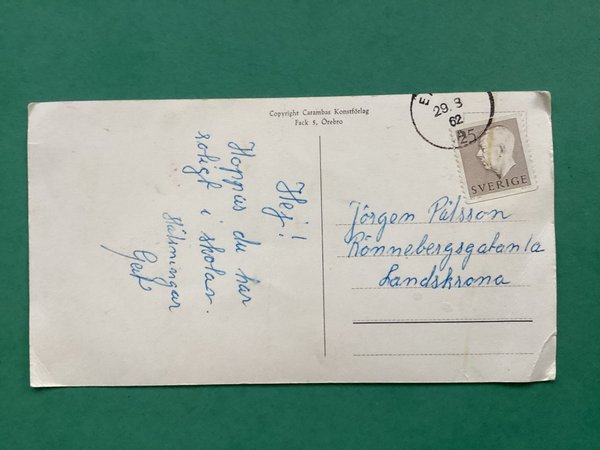 Copyright Carambas Konstförlag
Fack 5, Örebro
Hej!
Hoppas du har
roligt i skolan.
Hälsningar
29. 3
62
25
SVERIGE
Jörgen Pålsson
Rönnebergsgatan 1a
Landskrona